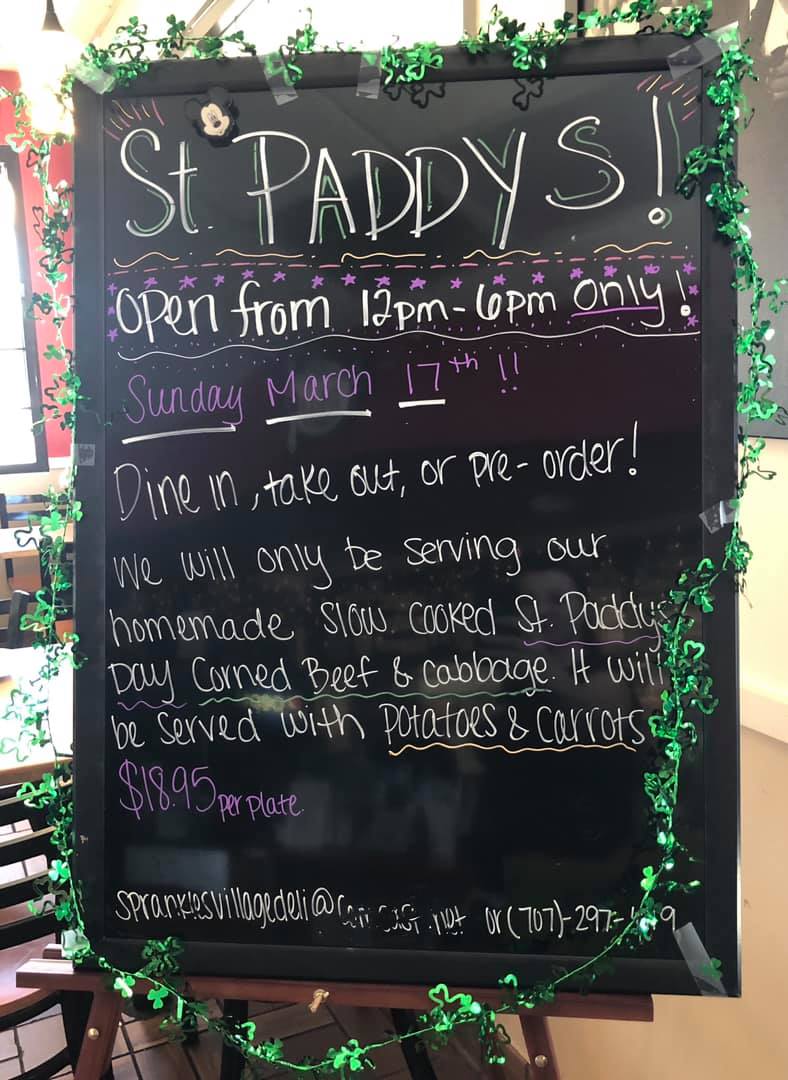 St. PADDYS!
open from 12pm-6pm only!
Sunday March 17th !!
Dine in, take out, or pre-order!
We will only be serving our
homemade slow cooked St. Paddys
Day Corned Beef & cabbage. It will
be served with potatoes & carrots
$18.95 per plate.
or (707)-297-